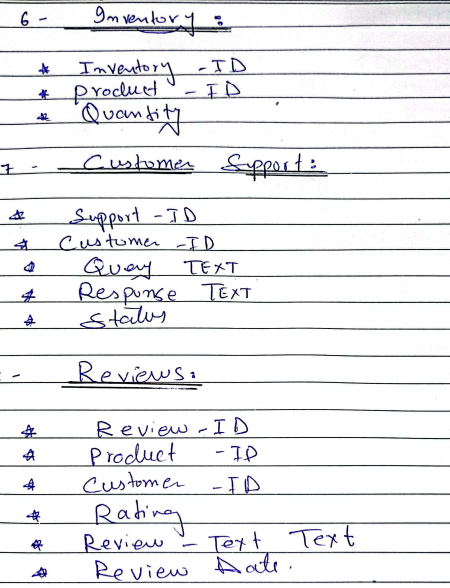 6 - Inventory :
* Inventory - ID
* Product - ID
* Quantity
7 - Customer Support :
* Support - ID
* Customer - ID
* Query TEXT
* Response TEXT
* Status
- Reviews :
* Review - ID
* Product - ID
* Customer - ID
* Rating
* Review - Text Text
* Review Date.